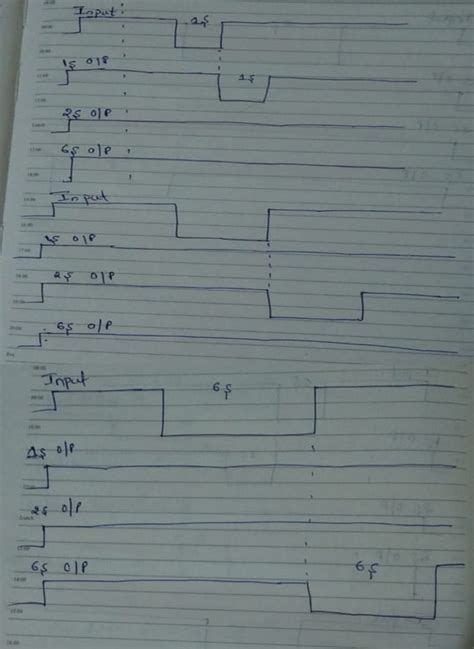 Input
1s
1s O/P
1s
2s O/P
6s O/P
Input
1s O/P
2s O/P
6s O/P
Input
6s
1s O/P
2s O/P
6s O/P
6s